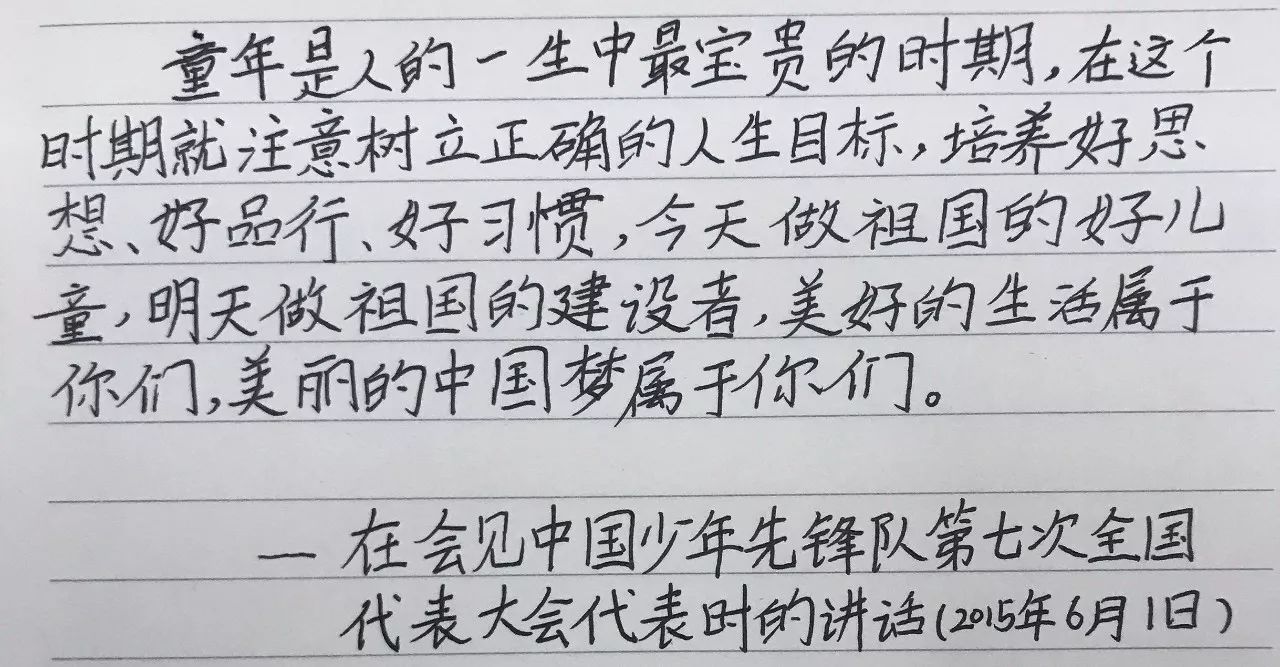 童年是人的一生中最宝贵的时期,在这个
时期就注意树立正确的人生目标,培养好思
想、好品行、好习惯,今天做祖国的好儿
童,明天做祖国的建设者,美好的生活属于
你们,美丽的中国梦属于你们。
— 在会见中国少年先锋队第七次全国
代表大会代表时的讲话(2015年6月1日)